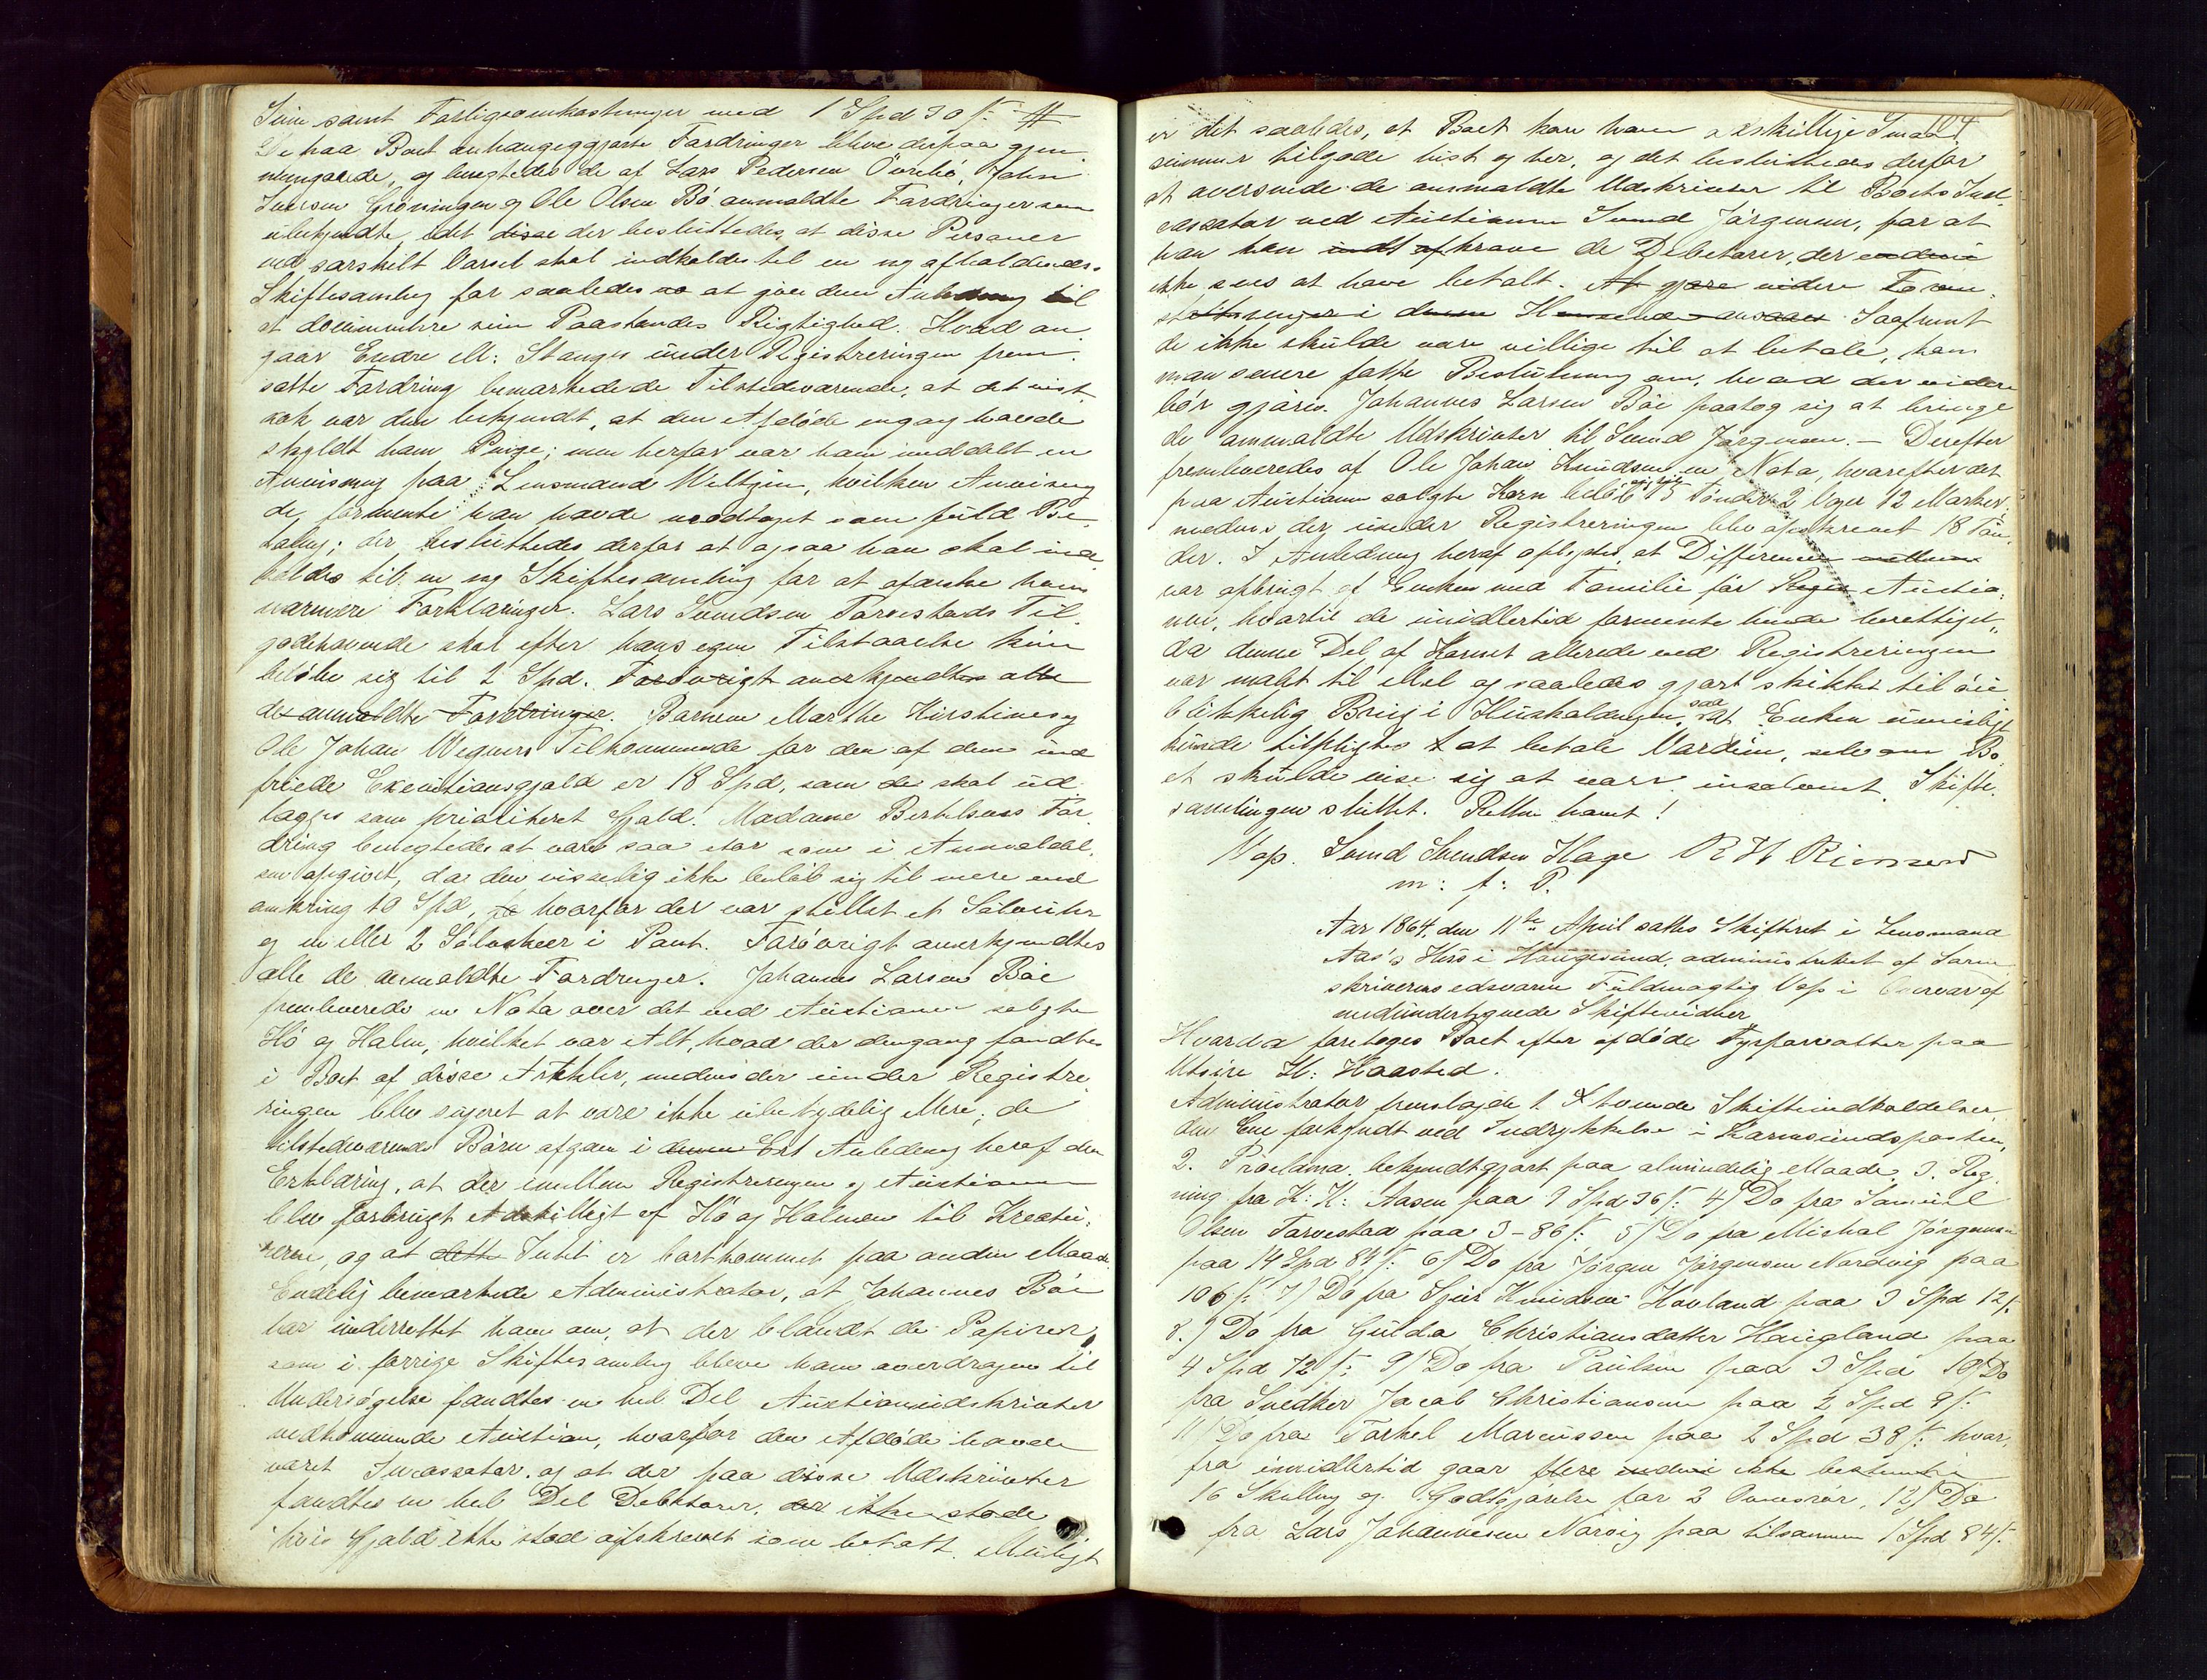 Sum samt Forligsomkostninger med 1 Spd 30 ß.
De paa Boet anhængiggjorte Fordringer bleve derpaa gjen-
nemgaaede, og benegtedes de af Lars Pedersen Övrebö, John
Iversen Gröningen og Ole Olsen Bö anmeldte Fordringer som
ubekjendte, idet disse der besluttedes, at disse Personer
ved særskilt Varsel skal indkaldes til en ny afholdendes
Skiftesamling for saaledes at give dem Anledning til
at documentere sin Paastandes Rigtighed. Hvad an-
gaar Endre M: Stanges under Registreringen frem-
satte Fordring bemærkede de Tilstedeværende, at det vist-
nok var dem bekjendt, at den Afdöde engang havde
skyldt ham Penge; men herfor var ham meddelt en
Anvisning paa Lensmand Weltzin, hvilken Anvisning
de formente han havde modtaget som fuld Be-
taling; der besluttedes derfor at ogsaa han skal ind-
kaldes til en ny Skiftesamling for at afæske ham
nærmere Forklaringer. Lars Svendsen Torvestads Til-
godehavende skal efter hans egen Tilstaaelse kun
belöbe sig til 2 Spd. Forövrigt anerkjendtes alle
de anmeldte Fordringer. Börnene Marthe Kirstines og
Ole Johan Wegners Tilkommende for den af dem ind-
friede Executionsgjæld er 18 Spd, som de skal ud-
lægges som prioriteret Gjæld. Madame Bertelsens For-
dring benegtedes at være saa stor som i Anmeldel-
sen opgivet, da den visselig ikke belöb sig til mere end
omkring 10 Spd, hvorfor der var stillet et Sölvuhr
og en eller 2 Sölvskeer i Pant. Forövrigt anerkjendtes
alle de anmeldte Fordringer. Johannes Larsen Böe
fremleverede en Nota over det ved Auctionen solgte
Hö og Halm, hvilket var Alt, hvad der dengang fandtes
i Boet af disse Artikler, medens der under Registre-
ringen blev opgivet at være ikke ubetydelig Mere; de
tilstedeværende Börn afgav i denne Ert Anledning heraf den
Erklæring, at der imellem Registreringen og Auctionen
blev forbrugt Adskilligt af Hö og Halmen til Kreatu-
rerne, og at dette Intet er bortkommet paa anden Maade.
Endelig bemærkede Administrator, at Johannes Böe
har underrettet ham om, at der blandt de Papirer,
som i forrige Skiftesamling bleve ham overdragen til
Undersögelse fandtes en hel Del Auctionsudskrivter
vedkommende Auction, hvorfor den Afdöde havde
været Incassator, og at der paa disse Udskrivter
fandtes en hel Del Debitorer, der ikke stode
hvis Gjæld ikke stod afskrevet som betalt. Muligt
104
er det saaledes, at Boet kan have adskillige Smaa-
summer tilgode hist og her, og det besluttedes derfor
at oversende de anmeldte Udskrivter til Boets Inc-
cassator ved Auctionen Svend Jörgensen, for at
han kan indt afkræve de Debitorer, der endnu
ikke sees at have betalt. At gjöre videre Foran-
staltninger i denne Henseende ansaaes Saafremt
de ikke skulde være villige til at betale, kan
man senere fatte Beslutning om, hvad der videre
bör gjöres. Johannes Larsen Böe paatog sig at bringe
de anmeldte Udskrivter til Svend Jörgensen. – Derefter
fremleveredes af Ole Johan Knudsen en Nota, hvorefter det
paa Auctionen solgte Korn belöb sig til 15 Tönder 2 Voger 12 Marker,
medens der under Registreringen blev opskrevet 18 Tön-
der. I Anledning heraf oplystes, at Differencen mellem
var opbrugt af Enken med Familie för Regis Auctio-
nen, hvortil de imidlertid formente hende berettiget,
da denne Del af Kornet allerede ved Registreringen
var malet til Mel og saaledes gjort skikket til öie-
blikkelig Brug i Husholdningen, saa at Enken umuligt
kunde tilpligtes at betale Værdien, selv om Bo-
et skulde vise sig at være insolvent. Skifte-
samlingen sluttet. Retten hævet!
Vop. Svend Svendsen Hage R H Rimsen
m: f: P.
Aar 1864, den 11te April sattes Skifteret i Lensmand
Aas's Hus i Haugesund, administreret af Soren-
skriverens edsvorne Fuldmægtig Vop i Overvær af
medundertegnede Skiftevidner
Hvorda foretoges Boet efter afdöde Fyrforvalter paa
Utsire H: Haasted.
Administrator fremlagde 1 X tvende Skifteindkaldelser
den Ene forkyndt ved Indrykkelse i Karmsundsposten,
2. Proclama bekjendtgjort paa almindelig Maade, 3. Reg-
ning fra K: K: Aasen paa 1 Spd 36 ß: 4) Do fra Samuel
Olsen Torvestad paa 3 - 86 ß: 5) Do fra Michal Jörgensen
paa 14 Spd 84 ß: 6) Do fra Jörgen Jörgensen Nordvig paa
106 ß: 7) Do fra Sjur Knudsen Hovland paa 3 Spd 12 ß.
8.) Do fra Gulda Christiansdatter Haugland paa
4 Spd 72 ß: 9) Do fra Paulsen paa 3 Spd 10) Do
fra Snedker Jacob Christiansen paa 2 Spd 9 ß:
11 Do fra Torkel Marcussen paa 2 Spd 38 ß: hvor-
fra imidlertid gaar flere endnu ikke bestemte
16 Skilling og Godtgjörelse for 2 Ovnsrör, 12) Do
fra Lars Johannesen Norvig paa tilsammen 1 Spd 84 ß.